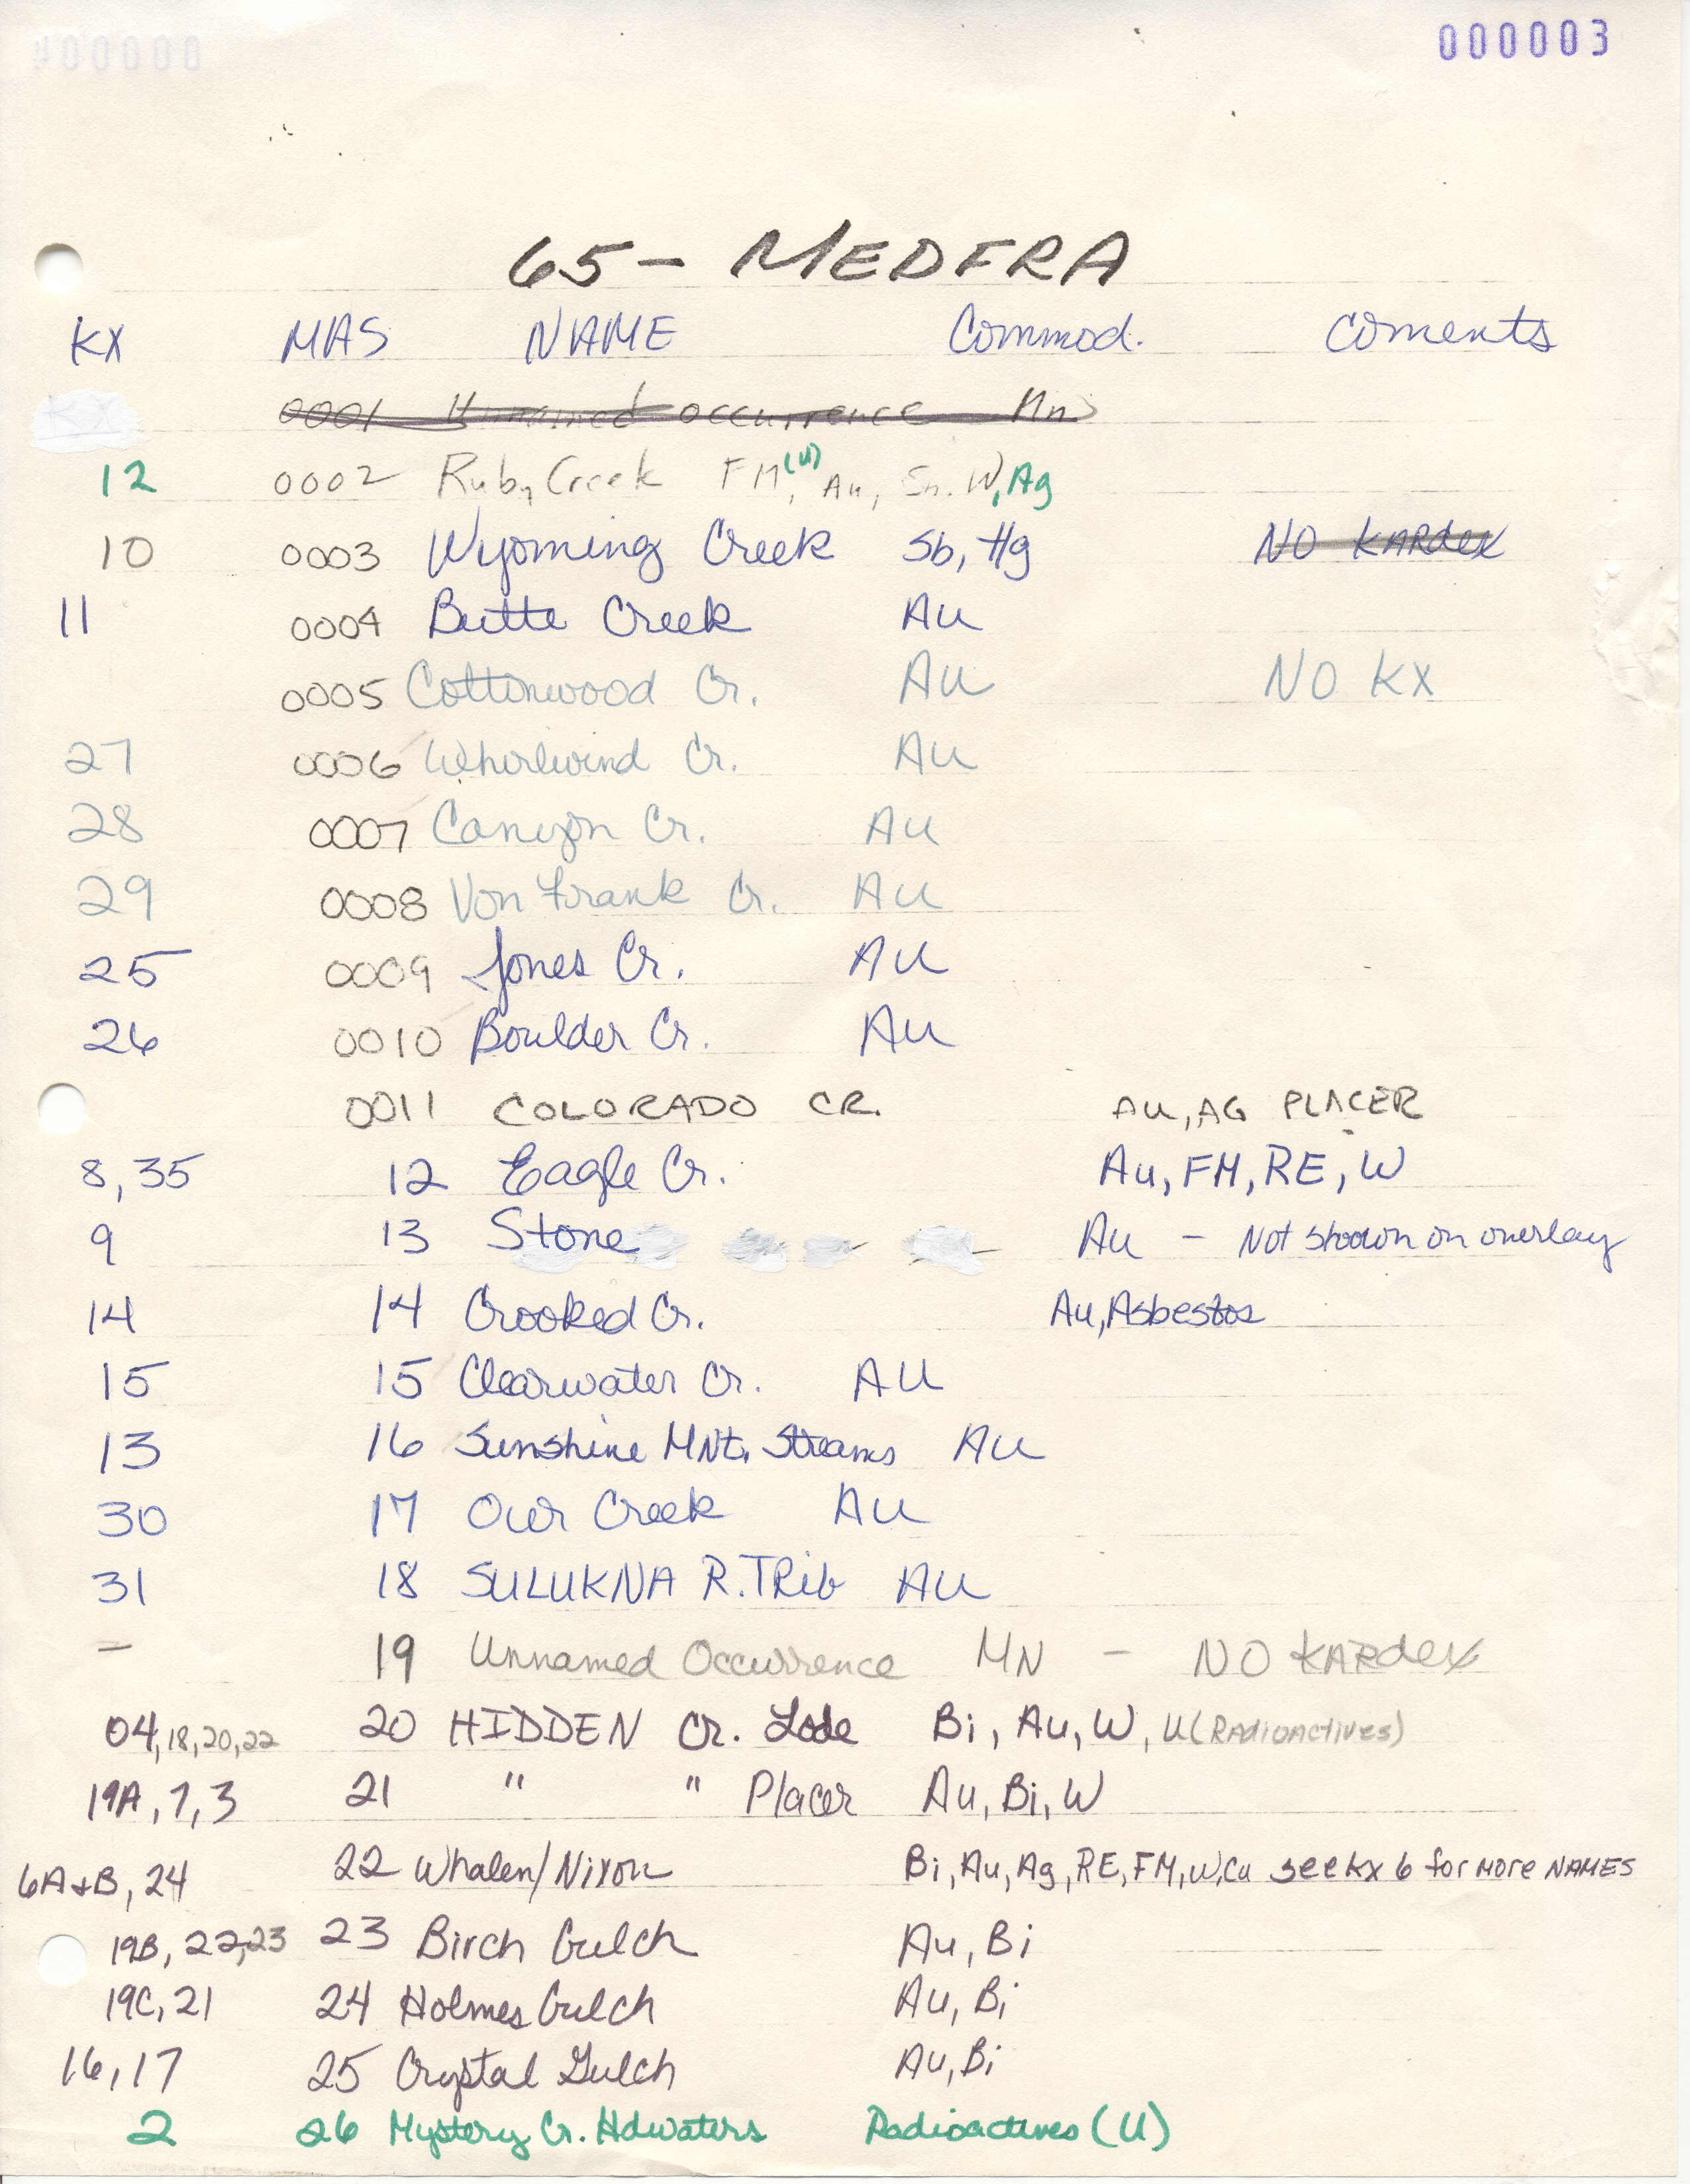 000003
65 - MEDFRA
KX MAS NAME Commod. Coments
0001 Unnamed occurrence Mn
12 0002 Ruby Creek FM,(U) Au, Sn. W, Ag
10 0003 Wyoming Creek Sb, Hg NO KARdex
11 0004 Butte Creek Au
0005 Cottonwood Cr. Au NO KX
27 0006 Whirlwind Cr. Au
28 0007 Canyon Cr. Au
29 0008 Von Frank Cr. Au
25 0009 Jones Cr. Au
26 0010 Boulder Cr. Au
0011 COLORADO CR. AU, AG PLACER
8, 35 12 Eagle Cr. Au, FM, RE, W
9 13 Stone Au - Not shown on overlay
14 14 Crooked Cr. Au, Asbestos
15 15 Clearwater Cr. AU
13 16 Sunshine MNt. Streams AU
30 17 Our Creek AU
31 18 SULUKNA R. TRib AU
- 19 Unnamed Occurrence MN - NO KARdex
04, 18, 20, 22 20 HIDDEN Cr. Lode Bi, Au, W, U (RADiOActives)
19A, 7, 3 21 " " Placer Au, Bi, W
6A+B, 24 22 Whalen/Nixon Bi, Au, Ag, RE, FM, W, Cu see kx 6 for more NAMES
19B, 22, 23 23 Birch Gulch Au, Bi
19C, 21 24 Holmes Gulch Au, Bi
16, 17 25 Crystal Gulch Au, Bi
2 26 Mystery Cr. Hdwaters Radioactives (U)